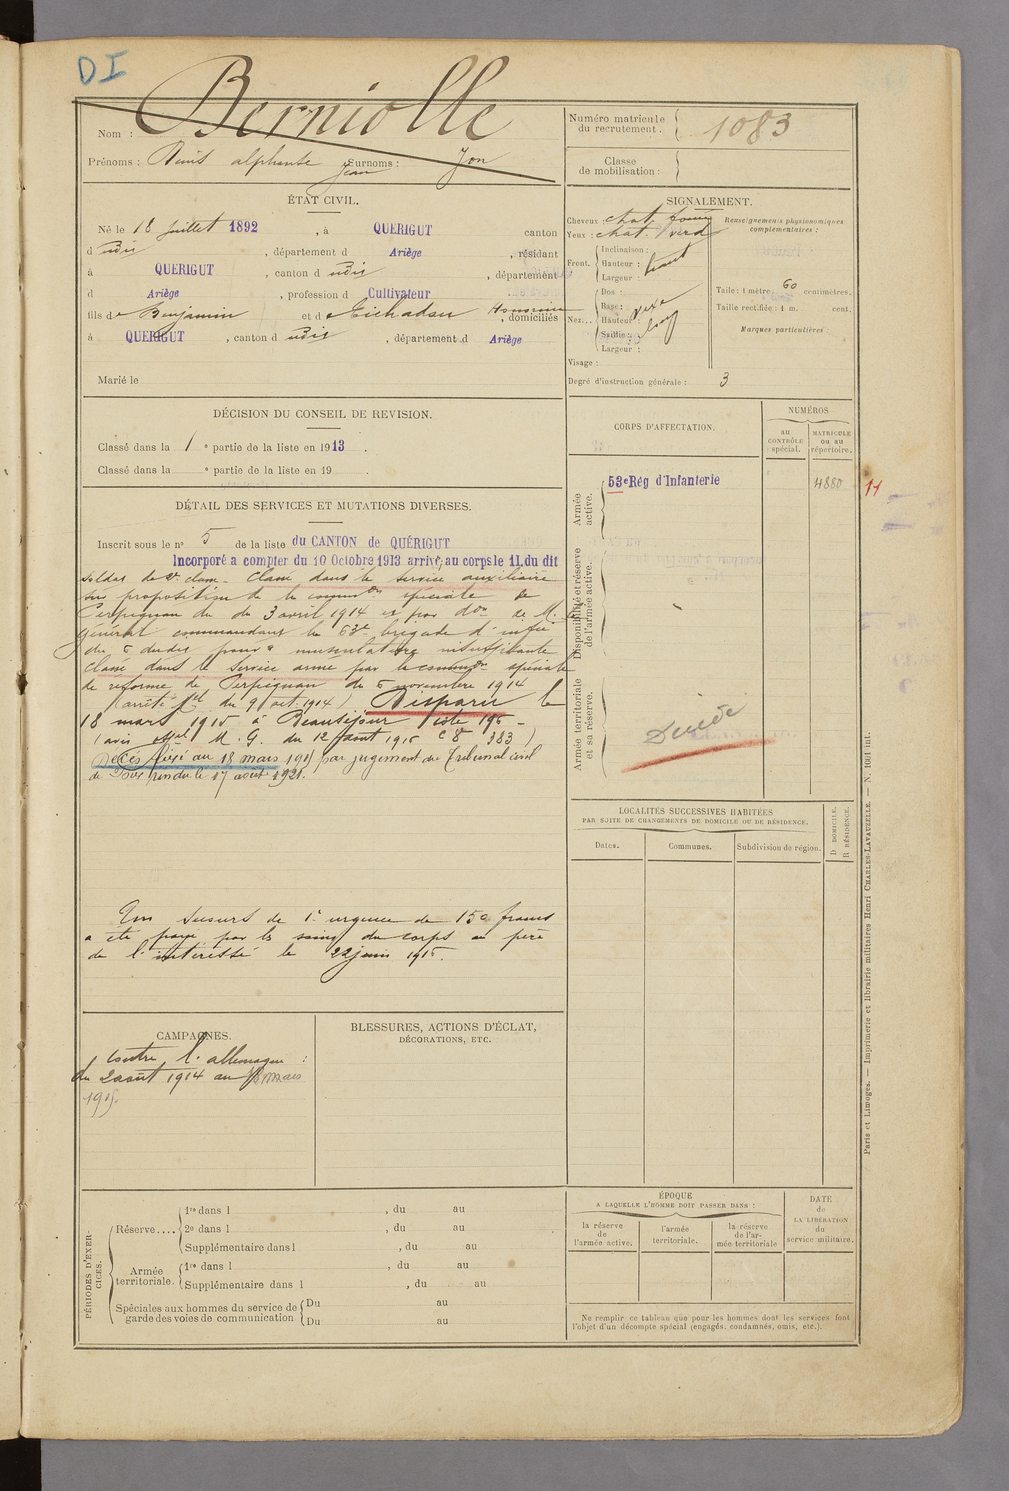 DI
Nom : Berniolle
Prénoms : Denis alphonse Jean Surnoms : Jon
Numéro matricule
du recrutement. 1083
Classe
de mobilisation :
ÉTAT CIVIL.
Né le 18 juillet 1892, à QUERIGUT canton
d udit, département d Ariège, résidant
à QUERIGUT, canton d udit, département
d Ariège, profession d Cultivateur
fils de Benjamin et d e Honorine, domiciliés
à QUERIGUT, canton d udit, département d Ariège
Marié le
SIGNALEMENT.
Cheveux : chat. foncé
Yeux : chat. verd
Renseignements physionomiques
complémentaires :
Front.
Inclinaison :
Hauteur : haut
Largeur :
Nez...
Dos :
Base : vexe
Hauteur : long
Saillie :
Largeur :
Taille : 1 mètre 60 centimètres.
Taille rectifiée : 1 m. cent.
Marques particulières
Visage :
Degré d'instruction générale : 3
DÉCISION DU CONSEIL DE REVISION.
Classé dans la 1 e partie de la liste en 1913.
Classé dans la e partie de la liste en 19 .
CORPS D'AFFECTATION.
NUMÉROS
au
CONTRÔLE
spécial.
MATRICULE
ou au
répertoire.
Armée
active.
53e Rég d'Infanterie
4880
11
Disponibilité et réserve
de l'armée active.
Armée territoriale
et sa réserve.
Décédé
DÉTAIL DES SERVICES ET MUTATIONS DIVERSES.
Inscrit sous le n° 5 de la liste du CANTON de QUÉRIGUT
Incorporé à compter du 10 Octobre 1913 arrivé au corps le 11 du dit
soldat de 2e classe. Classé dans le service auxiliaire
sur proposition de la common spéciale de
Perpignan du 3 avril 1914 et par don de M. le
général commandant la 63e brigade d'infie
du 5 dudit pour musculature insuffisante
Classé dans le service armé par la common spéciale
de réforme de Perpignan du 5 novembre 1914
(arrêté du 9 oct. 1914) Disparu le
18 mars 1915 à Beauséjour cote 196 -
(avis offel M. G. du 12 août 1915 C 8 383)
Décès fixé au 18 mars 1915 par jugement du Tribunal civil
de Foix rendu le 17 août 1921.
Un secours de 1e urgence de 150 francs
a été payé par les soins du corps au père
de l'intéressé le 22 juin 1915.
LOCALITÉS SUCCESSIVES HABITÉES
PAR SUITE DE CHANGEMENTS DE DOMICILE OU DE RÉSIDENCE.
Dates.
Communes.
Subdivision de région.
D. DOMICILE.
R. RÉSIDENCE.
CAMPAGNES.
contre l'allemagne :
du 2 août 1914 au 18 mars
1915.
BLESSURES, ACTIONS D'ÉCLAT,
DÉCORATIONS, ETC.
PÉRIODES D'EXER-
CICES.
Réserve....
1re dans l , du au
2e dans l , du au
Supplémentaire dans l , du au
Armée
territoriale.
1re dans l , du au
Supplémentaire dans l , du au
Spéciales aux hommes du service de
garde des voies de communication
Du au
Du au
ÉPOQUE
A LAQUELLE L'HOMME DOIT PASSER DANS :
la réserve
de
l'armée active.
l'armée
territoriale.
la réserve
de l'ar-
mée territoriale
DATE
de
LA LIBÉRATION
du
service militaire.
Ne remplir ce tableau que pour les hommes dont les services font
l'objet d'un décompte spécial (engagés, condamnés, omis, etc.).
Paris et Limoges. — Imprimerie et librairie militaires Henri CHARLES-LAVAUZELLE. — N. 1601 int.